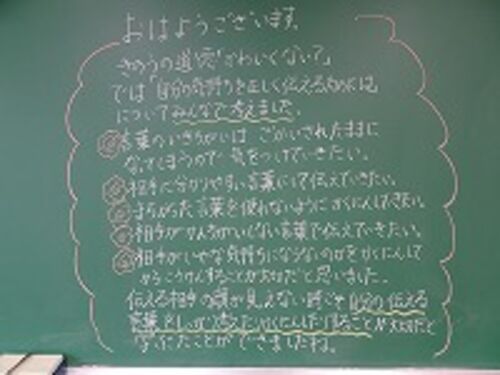 おはようございます。
きのうの道徳「かわいくない?」
では「自分の気持ちを正しく伝えるためには」
についてみんなで考えました。
言葉のいきちがいは ごかいされたままに
なってしまうので 気をつけていきたい。
相手に分かりやすい言葉にして伝えていきたい。
まちがった言葉を使わないように かくにんしたい。
相手がかんちがいしない言葉で伝えていきたい。
相手がいやな気持ちにならないのかをかくにんして
からこうかんすることが大切だと思いました。
伝える相手の顔が見えない時こそ 自分の伝える
言葉を することが大切だと
学ぶことができましたね。